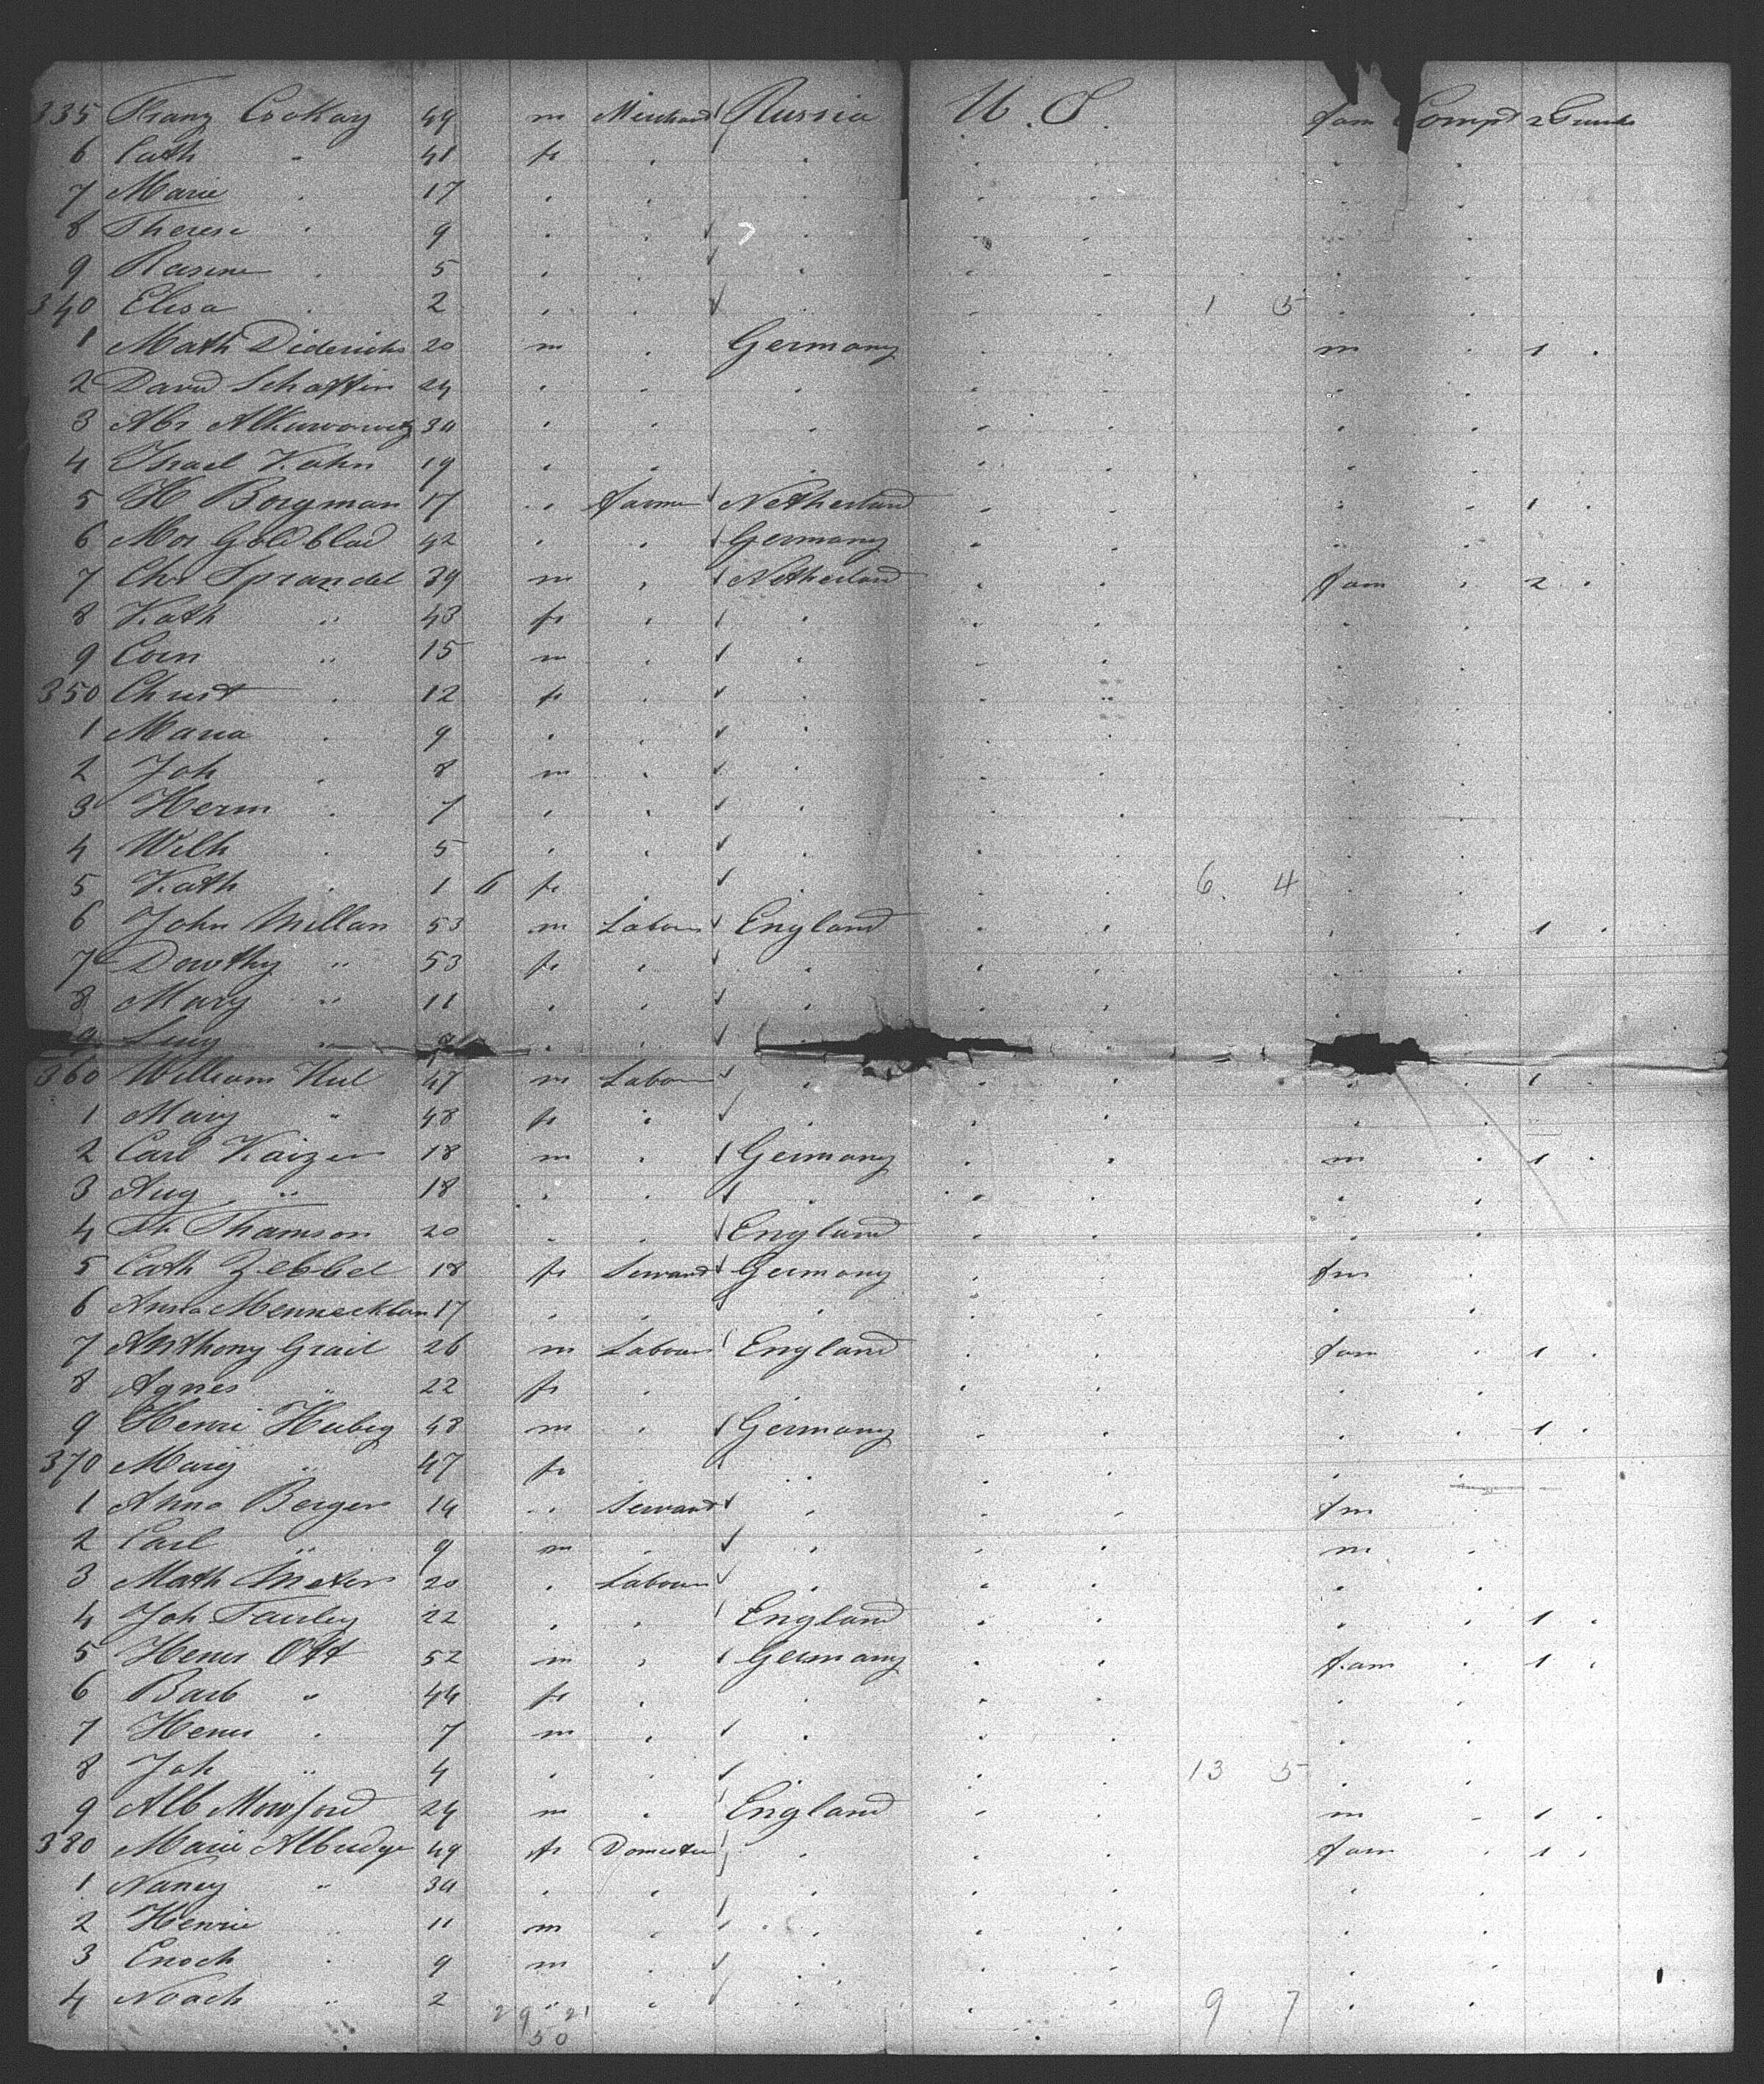 335 Franz Cockay 49 m Merchant Russia U.S. fam Compt 2 Trunks
6 Cath " 41 fe
7 Marie 17
8 Therese 9
9 Rasine 5
340 Elisa 2 1 5
1 Math Diderichs 20 m Germany m 1
2 David Schaffin 24
3 Abr Alkuwowitz 30
4 Israel Kahn 19
5 H Borgman 17 farmer Netherland 1
6 Mos Goldblad 42 Germany
7 Chr Sprandel 39 m Netherland fam 2
8 Kath " 43 fe
9 Corn " 15 m
350 Christ 12 fe
1 Maria 9
2 Joh 8 m
3 Herm 7
4 Wilh 5
5 Kath 1 6 fe 6 4
6 John Millan 53 m Labour England 1
7 Dowthy " 53 fe
8 Mary " 11
9
360 William Hul 47 m Labour 1
1 Mary " 48 fe
2 Carl Kaizer 18 m Germany m 1
3 Aug " 18
4 Thamson 20 England
5 Cath Zebbel 18 fe Servant Germany fm
6 Anna 17
7 Anthony Grail 26 m Labour England fam 1
8 Agnes " 22 fe
9 Henri Hubig 48 m Germany 1
370 Mary " 47 fe
1 Anna Berger 14 " Servant fm
2 Carl " 9 m m
3 Math Meter 20 Labour
4 Joh Fairley 22 England 1
5 Henri Ott 52 m Germany fam 1
6 Barb " 44 fe
7 Henri 7 m
8 Joh " 4 13 5
9 Alb Mowford 24 m England m 1
380 Marie Albudge 49 fe Domestic fam 1
1 Nancy " 30
2 Henrie 11 m
3 Enoch 9 m
4 Noach " 2 9 7
29 21
50